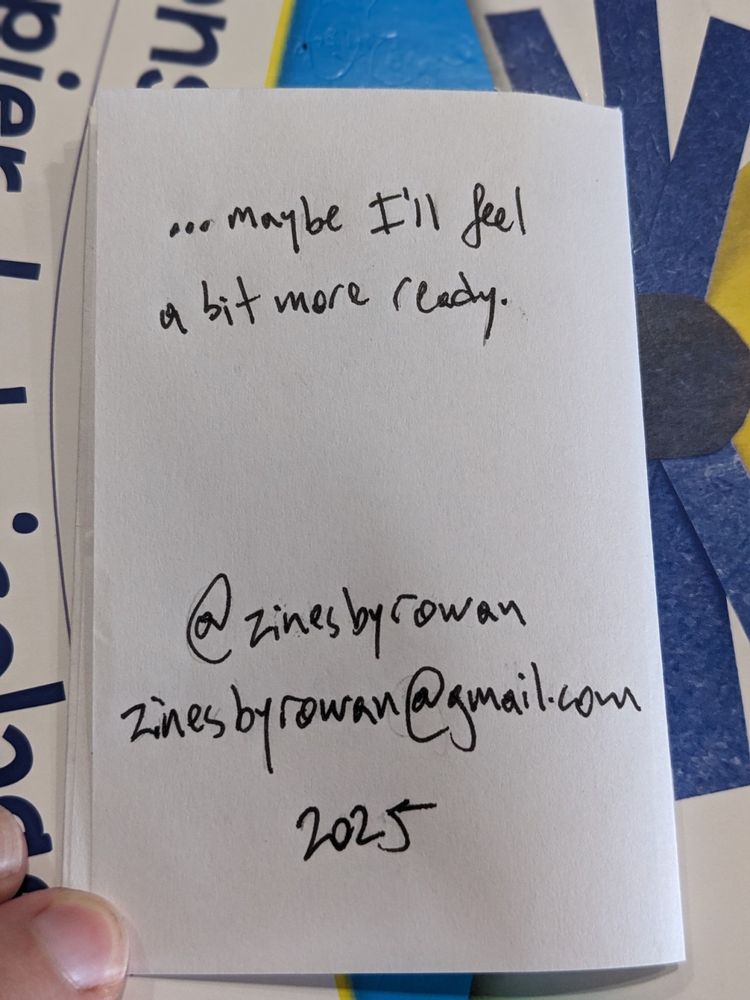 ... maybe I'll feel
a bit more ready.
@zinesbyrowan
zinesbyrowan@gmail.com
2025